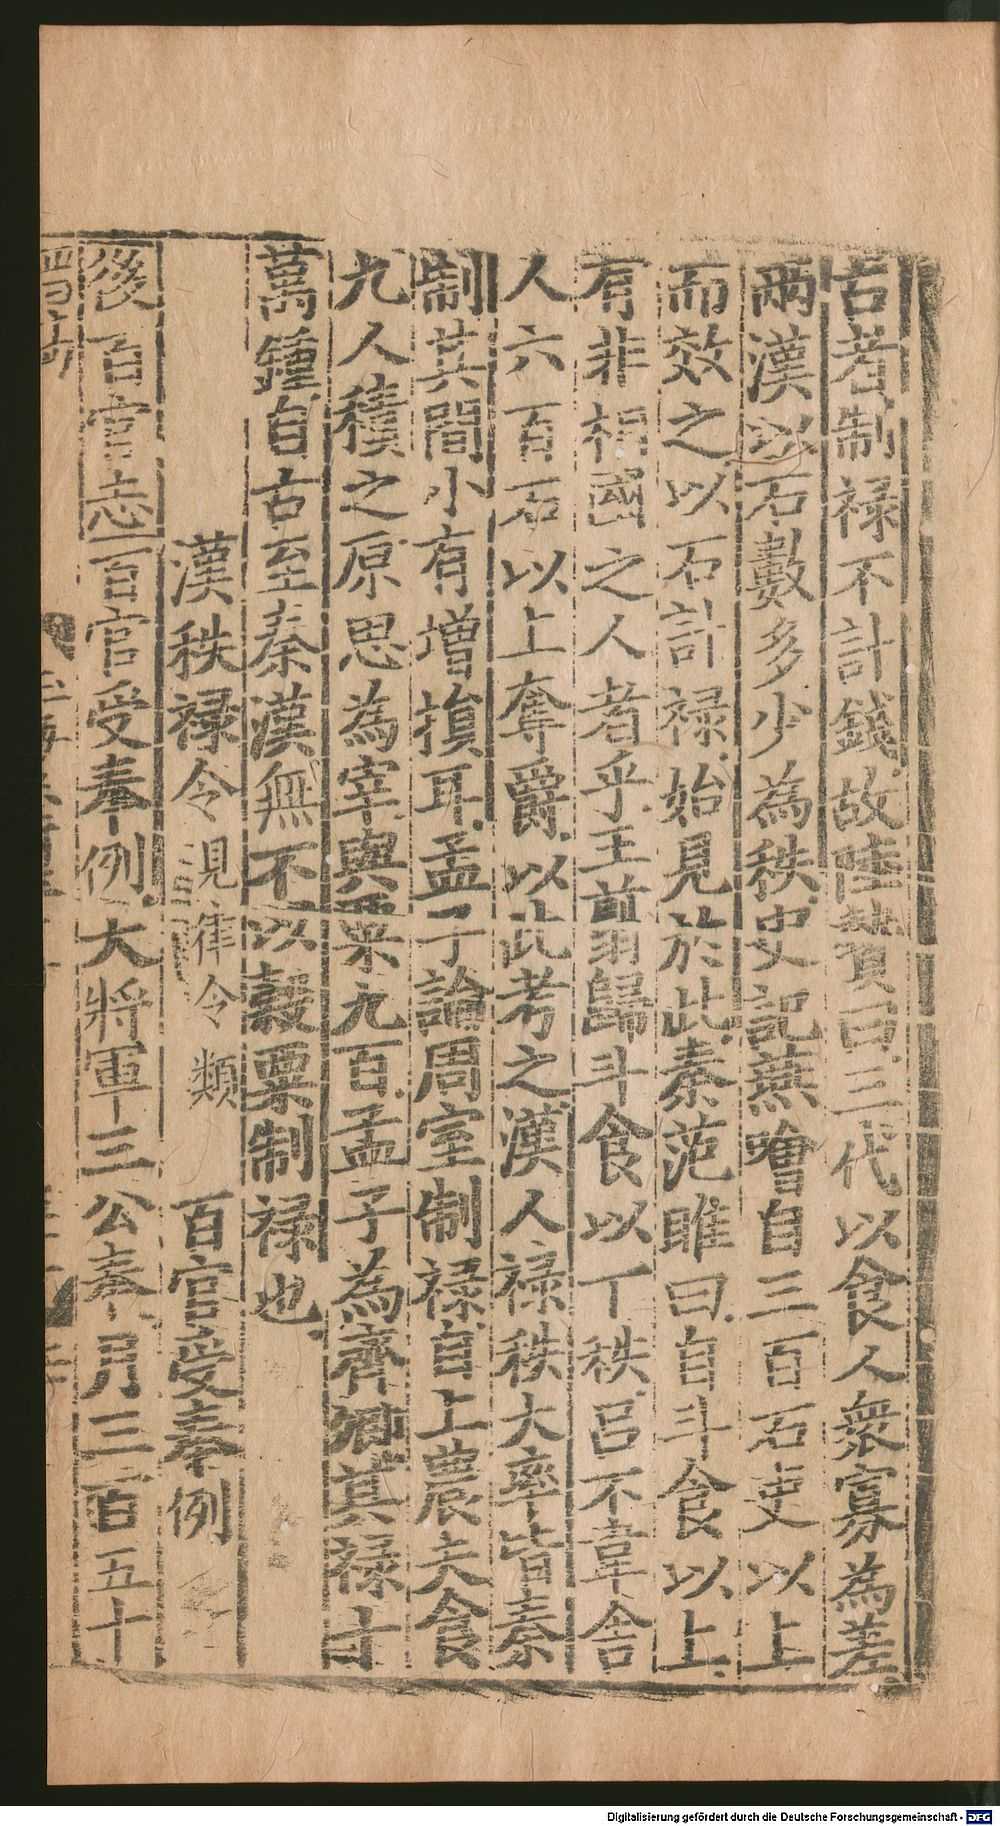 古者制禄不計錢故陸贄曰三代以食人衆寡為差
兩漢以石數多少為秩史記燕噲自三百石吏以上
而效之以石計禄始見於此秦范雎曰自斗食以上
有非相國之人者乎王翦歸斗食以下秩呂不韋舍
人六百石以上奪爵以此考之漢人禄秩大率皆秦
制其間小有增損耳孟子論周室制禄自上農夫食
九人積之原思為宰與粟九百孟子為齊卿其禄十
萬鍾自古至秦漢無不以穀粟制禄也
漢秩禄令見律令類 百官受奉例
後百官志百官受奉例大將軍三公奉月三百五十
Digitalisierung gefördert durch die Deutsche Forschungsgemeinschaft - DFG